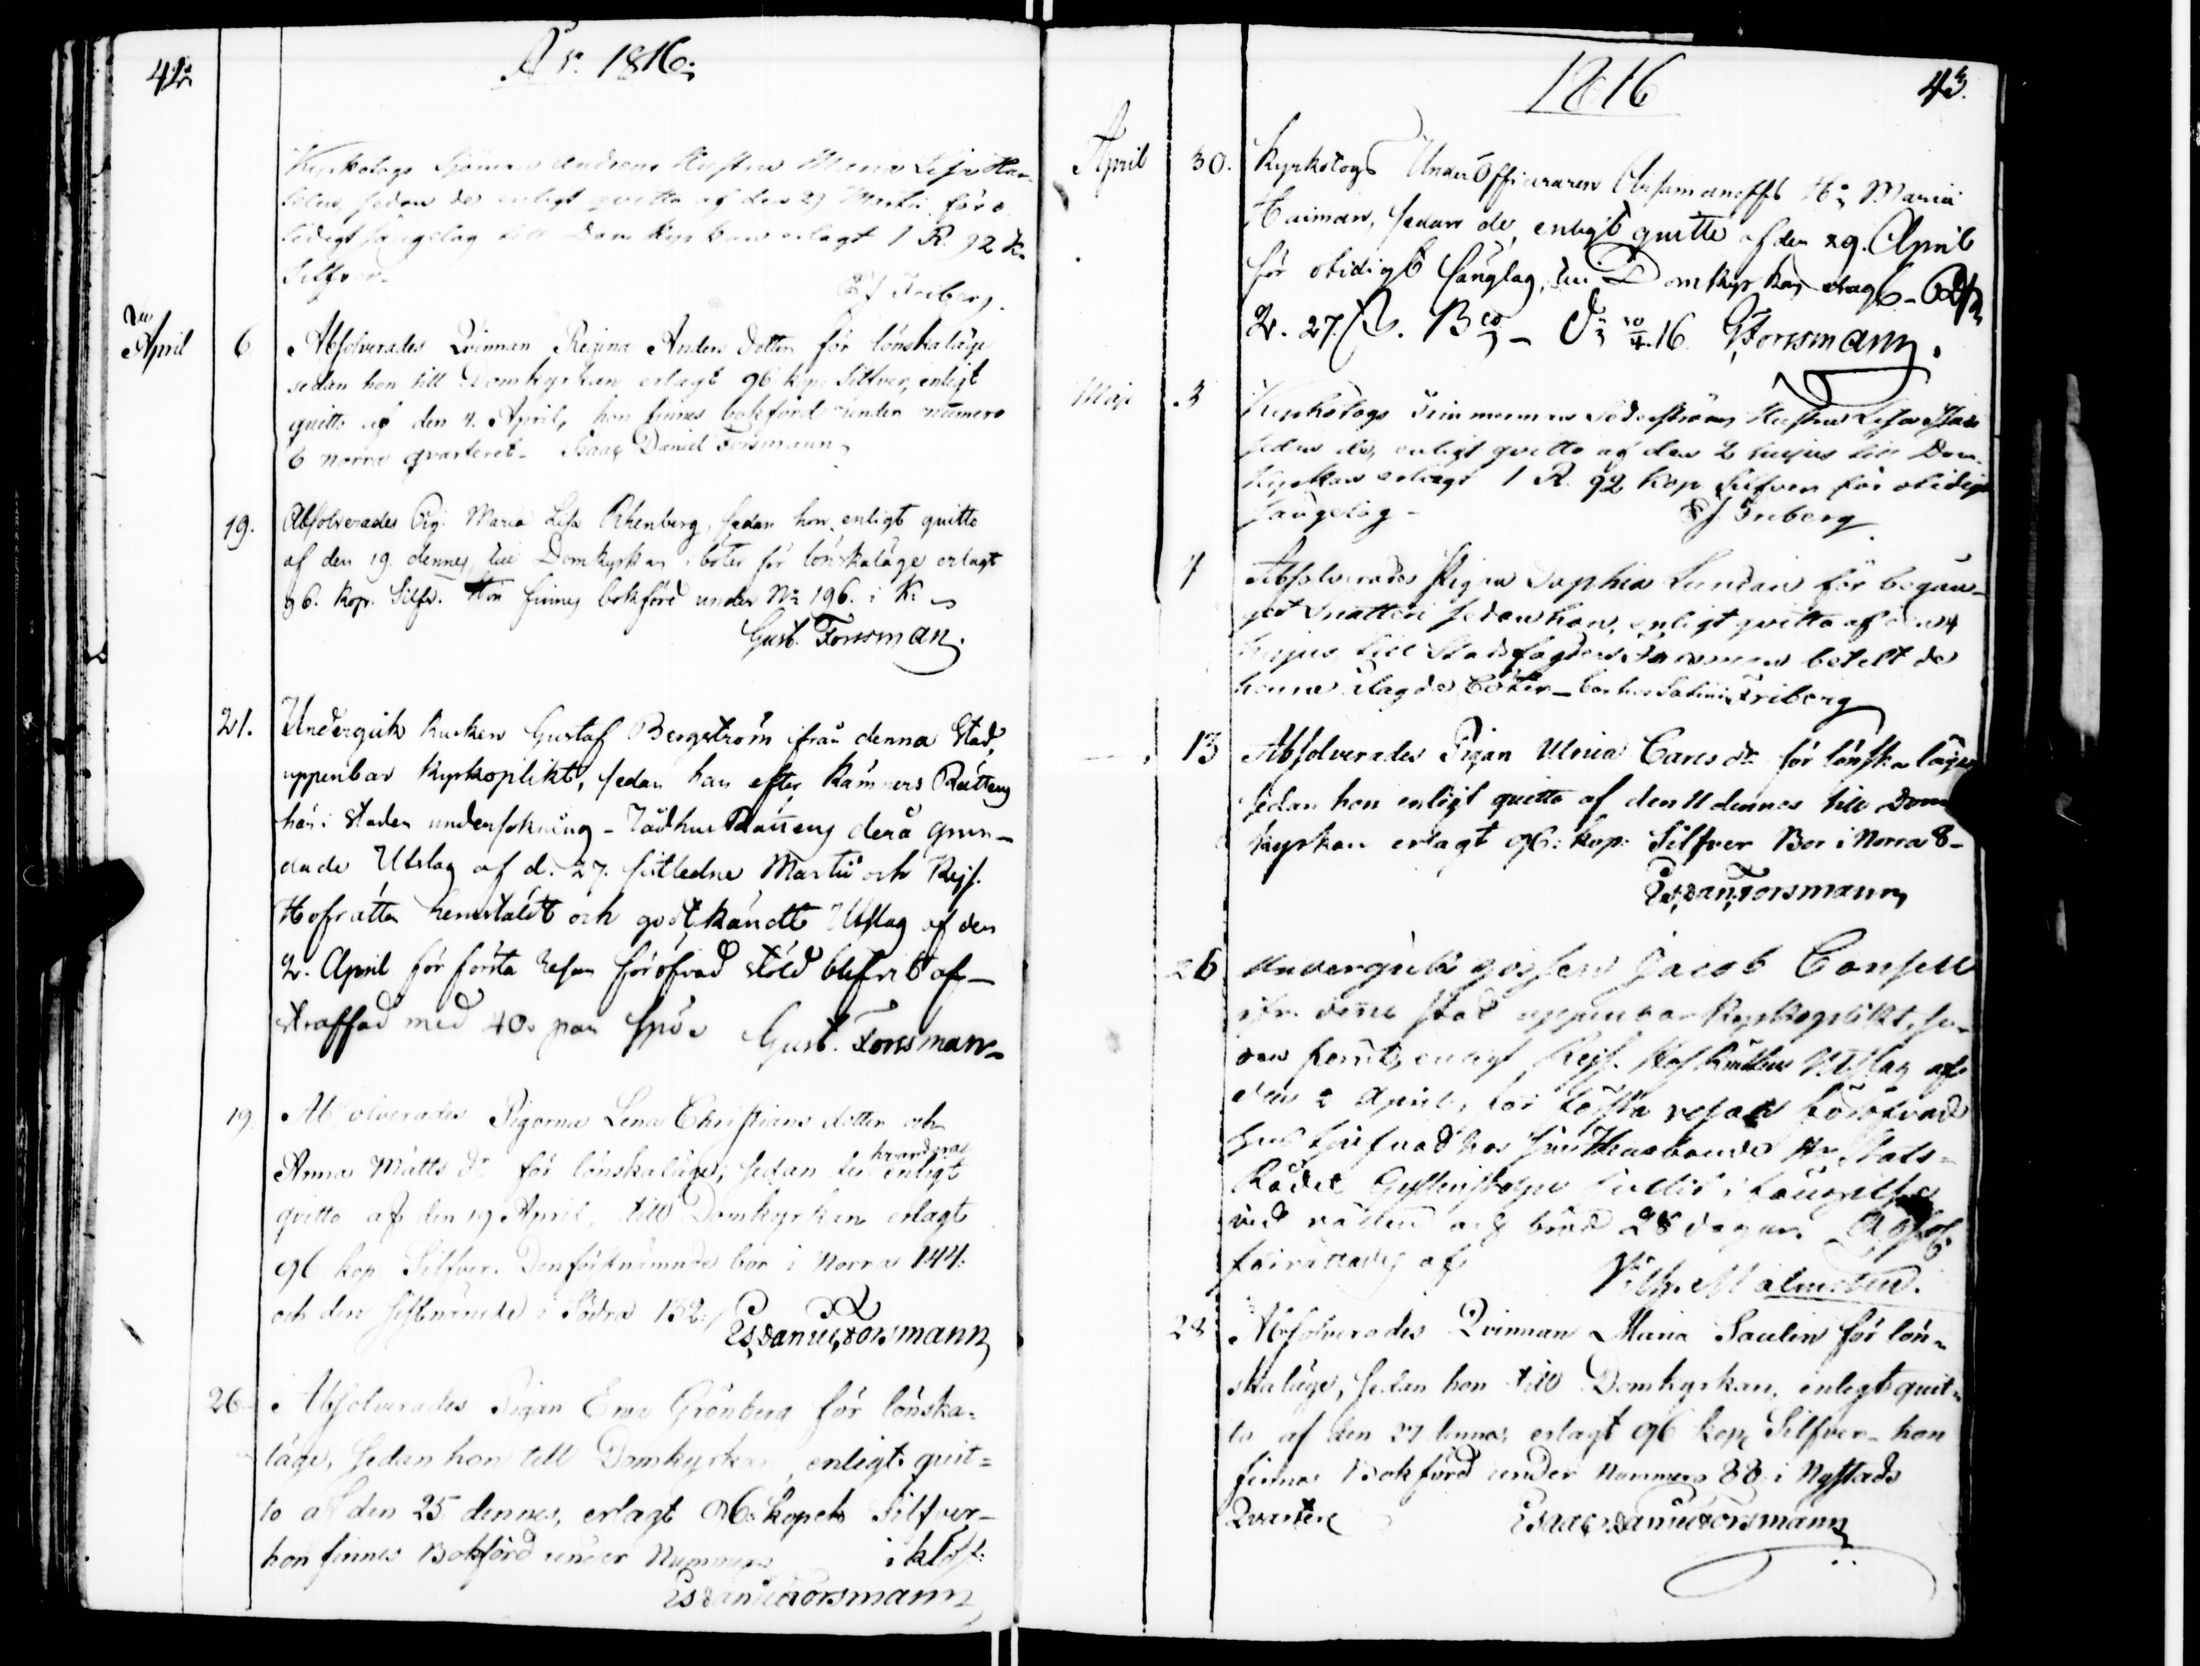 42.
År 1816.
Kyrkotogs Sjöman Hustru Maria Lisa
sedan de enligt qvitto af den 29 Martii för o-
tidigt sängelag till Domkyrkan erlagt 1 R. 92 k.
Silfver.
Friberg.
April 6 Absolverades Qvinnan Regina Anders dotter för lönskaläge
sedan hon till Domkyrkan erlagt 96 kop. Silfver, enligt
quitto af den 4. April, hon finnes bokförd under numero
6 norra qvarteret. Isaac Daniel Forsmann
19. Absolverades Pig. Maria Lisa Ahenberg, sedan hon, enligt quitto
af den 19. dennes, till Domkyrkan i böter för lönskaläge erlagt
96. kop. Silfv. Hon finnes bokförd under No 196. i K.
Gust. Forssman.
21. Undergick kusken Gustaf Bergström ifrån denna Stad,
uppenbar kyrkoplikt, sedan han efter Kämners Rättens
här i staden undersökning - Rådhus Rättens derå grun-
dade Utslag af d. 27. sistledne Martii och Kejs.
Hofrätten hemstäldt och godtkändt Utslag af den
2. April för första resan föröfvad stöld blifvit af-
straffad med 40. par spö. Gust. Forssman
19 Absolverades Pigorna Lena Christians dotter och
Anna Matts dr för lönskaläge, sedan de hvardera enligt
qvitto af den 19 April, till Domkyrkan erlagt
96 kop. Silfver. Den förstnämnde bor i Norra 144.
och den sistnämnde i Södra 152.
Es Daniel Forsmann
26. Absolverades Pigan Eva Grönberg för lönska=
läge, sedan hon till Domkyrkan, enligt quit=
to af den 25 dennes, erlagt 96 kopek Silfver-
hon finnes Bokförd under Nummer i klost.
Es Daniel Forsmann
1816
43.
April 30. Kyrkotogs UnderOfficeraren Hu Maria
Haiman, sedan de, enligt quitto af den 29. April
för otidigt sänglag, till Domkyrkan erlagt
2. 27. Bco - 30/4 16 GForssmann.
Maji 3 Kyrkotogs Timmerman Söderström Hustru Lisa
sedan de, enligt qvitto af den 2 hujus till Dom-
kyrkan erlagt 1 R. 92 kop Silfver för otidigt
sängelag - Friberg
7 Absolverades Pigan Sophia Lundin för begån-
get snatteri sedan hon, enligt qvitto af den 4
hujus, till Stadsfogden betalt de
henne ålagde böter - Friberg
13 Absolverades Pigan Ulrica Carls dr för lönskaläge
sedan hon enligt quitto af den 11 dennes till Dom
kyrkan erlagt 96. kop: Silfver Bor i Norra 8-
Es Dan Forsmann
26 Undergick gossen Jacob
ifr. denna stad uppenbar Kyrkoplikt, se-
dan han, enligt Kejs. Hof Rättens Utslag af
den 2 April, för första resan föröfvad
hos sin Husbonde Hr Stats-
Rådet i fängelse
vid vatten och bröd 28 dagar.
förrättades af Vilh. Malmsten.
28 Absolverades Qvinnan Maria Saulin för lön-
skaläge, sedan hon till Domkyrkan, enligt quit=
to af den 27 dennes erlagt 96 kop. Silfver - hon
finnes Bokförd under Nummer 88 i Nystads
Qvarter Isaac Daniel Forsmann